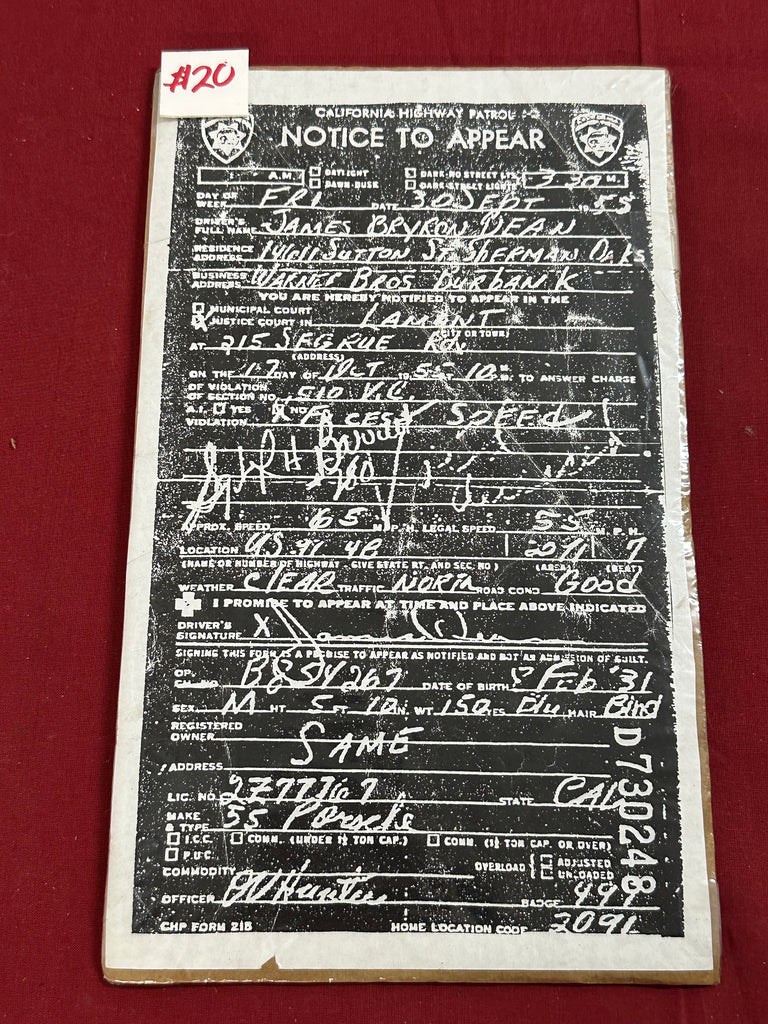 #20
CALIFORNIA HIGHWAY PATROL
NOTICE TO APPEAR
A.M. DAYLIGHT DARK-NO STREET LTS. 3:30 M.
DAWN-DUSK DARK-STREET LIGHTS
DAY OF WEEK FRI DATE 30 SEPT 1955
DRIVER'S FULL NAME JAMES BRYRON DEAN
RESIDENCE ADDRESS 14611 SUTTON ST. SHERMAN OAKS
BUSINESS ADDRESS WARNER BROS BURBANK
YOU ARE HEREBY NOTIFIED TO APPEAR IN THE
MUNICIPAL COURT
X JUSTICE COURT IN LAMONT
(CITY OR TOWN)
AT 215 SEGRUE Rd.
(ADDRESS)
ON THE 17 DAY OF OCT 1955 10 M. TO ANSWER CHARGE
OF VIOLATION OF SECTION NO. 510 V.C.
A.I. YES X NO
VIOLATION EXCESS SPEED
APPROX. SPEED 65 M.P.H. LEGAL SPEED 55 M.P.H.
LOCATION U.S. 99
(NAME OR NUMBER OF HIGHWAY GIVE STATE RT. AND SEC. NO) (AREA) (BEAT)
WEATHER CLEAR TRAFFIC NORTH ROAD COND Good
I PROMISE TO APPEAR AT TIME AND PLACE ABOVE INDICATED
DRIVER'S SIGNATURE X James Dean
SIGNING THIS FORM IS A PROMISE TO APPEAR AS NOTIFIED AND NOT AN ADMISSION OF GUILT.
OP. B854267 DATE OF BIRTH 8 Feb '31
SEX M HT 5 FT. 10 IN. WT 150 EYES Blu HAIR Blnd
REGISTERED OWNER SAME
ADDRESS
LIC. NO. 2Z77767 STATE CAL
MAKE & TYPE 55 Porsche
I.C.C. COMM. (UNDER 1½ TON CAP.) COMM. (1½ TON CAP. OR OVER)
P.U.C.
COMMODITY OVERLOAD ADJUSTED UNLOADED
OFFICER OV Hunter BADGE 499
CHP FORM 215 HOME LOCATION CODE 2091
D 730248